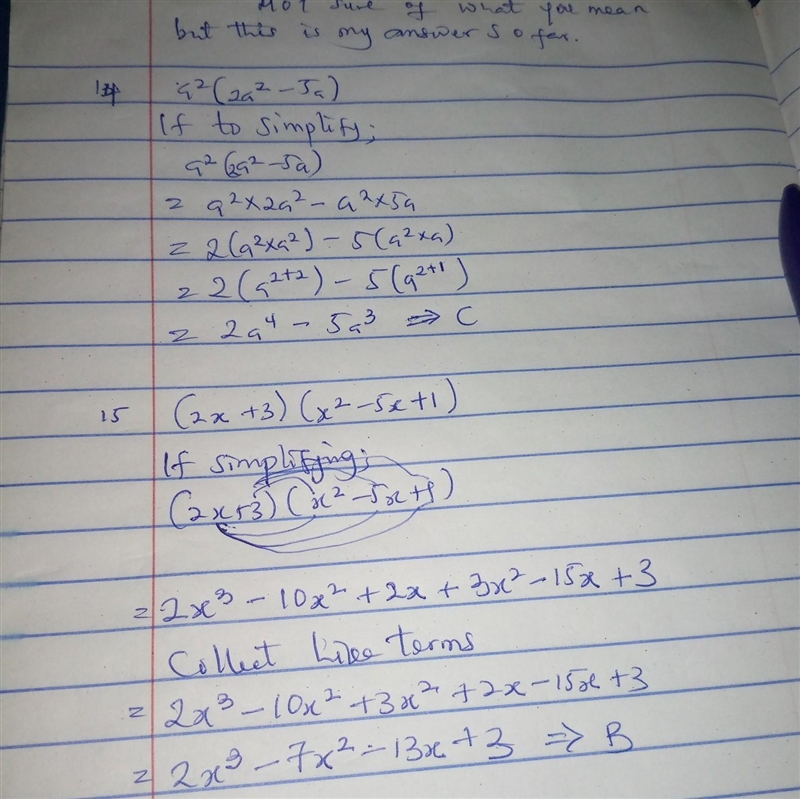 Not sure of what you mean
but this is my answer so far.
14 a²(2a² - 5a)
If to simplify;
a²(2a² - 5a)
= a² × 2a² - a² × 5a
= 2(a² × a²) - 5(a² × a)
= 2(a²⁺²) - 5(a²⁺¹)
= 2a⁴ - 5a³ ⇒ C
15 (2x + 3)(x² - 5x + 1)
If simplifying;
(2x + 3)(x² - 5x + 1)
= 2x³ - 10x² + 2x + 3x² - 15x + 3
Collect like terms
= 2x³ - 10x² + 3x² + 2x - 15x + 3
= 2x³ - 7x² - 13x + 3 ⇒ B